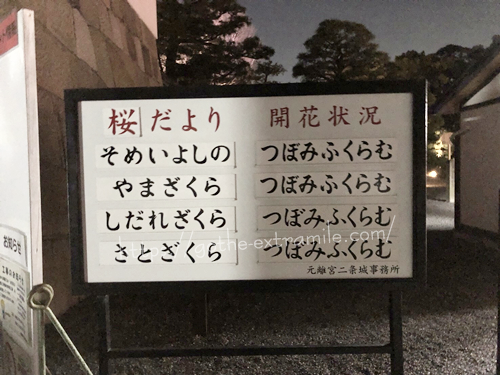 桜だより 開花状況
そめいよしの つぼみふくらむ
やまざくら つぼみふくらむ
しだれざくら つぼみふくらむ
さとざくら つぼみふくらむ
元離宮二条城事務所
お知らせ